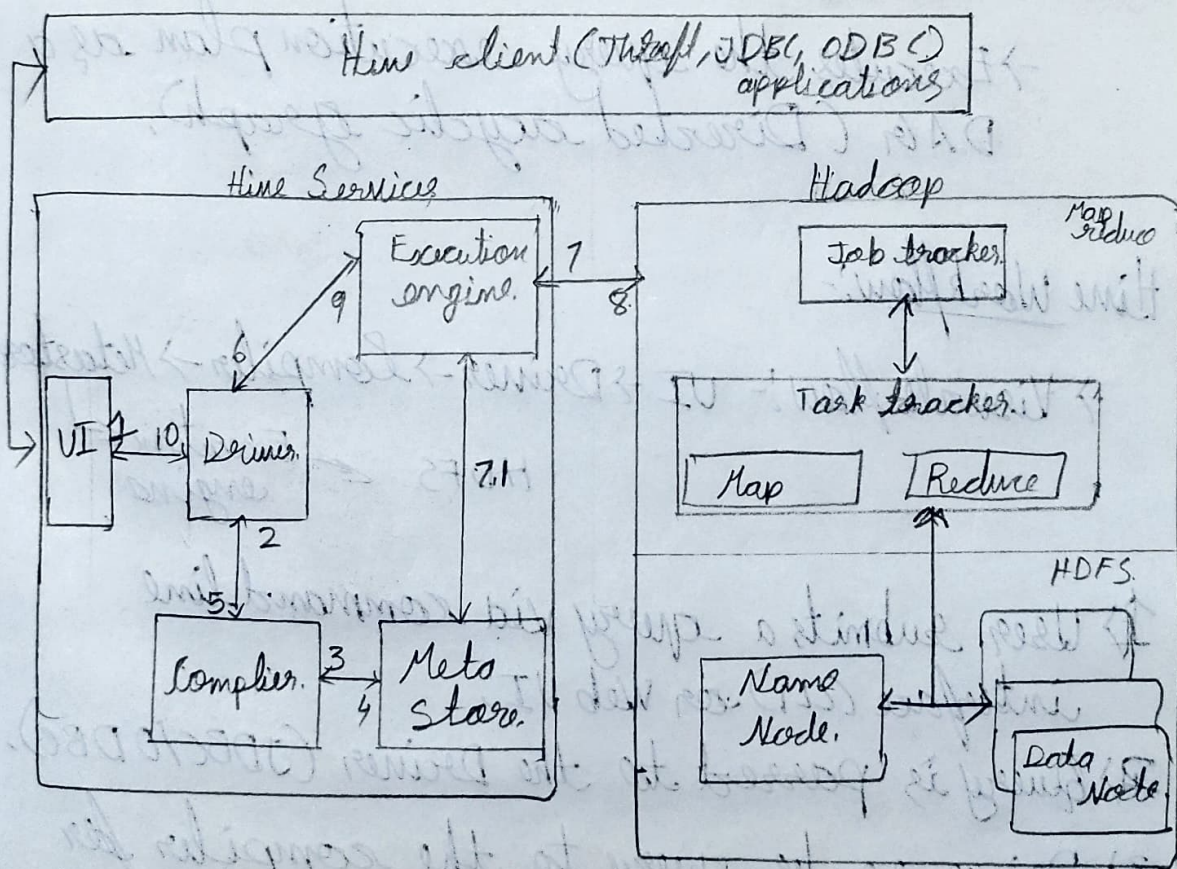 Hive client (Thrift, JDBC, ODBC)
applications
Hive Services
Hadoop
Map
reduce
Execution
engine.
Job tracker.
7
8
9
6
UI
1
10
Driver.
Task tracker.
Map
Reduce
7.1
2
5
HDFS.
Complier.
3
4
Meta
Store.
Name
Node.
Data
Node.